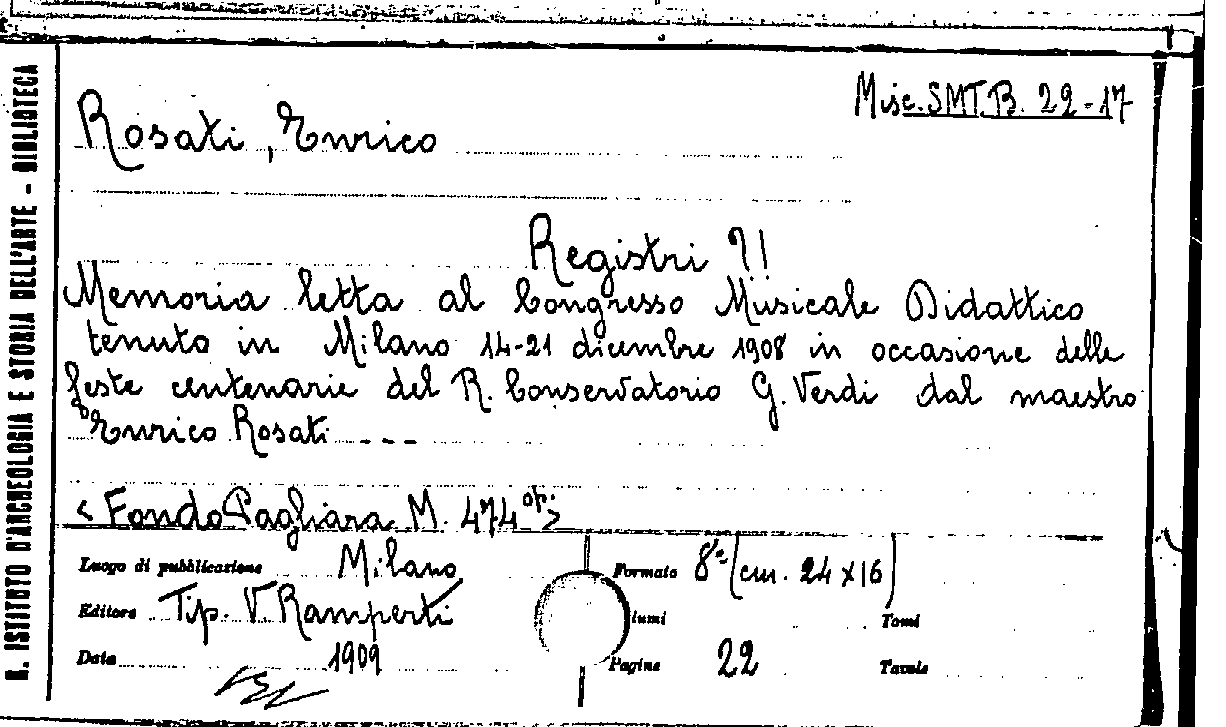 R. ISTITUTO D'ARCHEOLOGIA E STORIA DELL'ARTE - BIBLIOTECA
Misc. SMT. B. 22-17
Rosati, Enrico
Registri ?!
Memoria letta al Congresso Musicale Didattico
tenuto in Milano 14-21 dicembre 1908 in occasione delle
feste centenarie del R. Conservatorio G. Verdi dal maestro
Enrico Rosati - - -
<Fondo Pagliara M. 474 op.>
Luogo di pubblicazione Milano Formato 8º (cm. 24 x 16)
Editore Tip. V. Ramperti lumi Tomi
Data 1909 Pagine 22 Tavole